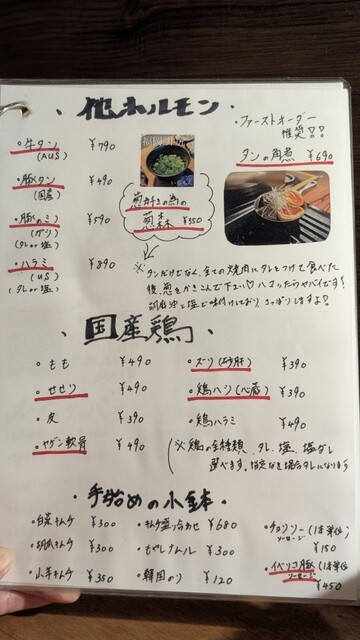 ・他ホルモン・
・牛タン ¥790
(AUS)
・豚タン ¥490
(国産)
・豚ハラミ ¥590
(タレor塩)
・ハラミ ¥890
(US)
(タレor塩)
葱好きの為の
葱森 ¥550
・ファーストオーダー
推奨!!
タンの角煮 ¥690
※タンだけでなく、全ての焼肉にタレをつけて食べた
後、葱をかきこんで下さい♡ ハマったらヤバイです!
胡麻油と塩で味付けしており、さっぱりしますよ?
・国産鶏・
・もも ¥490
・せせり ¥490
・皮 ¥390
・ヤゲン軟骨 ¥490
・ズリ(砂肝) ¥390
・鶏ハツ(心臓) ¥390
・鶏ハラミ ¥490
※鶏の全種類、タレ、塩、塩ダレ
選べます。指定なき場合タレになります
・手始めの小鉢・
・白菜キムチ ¥300
・胡瓜キムチ ¥300
・山芋キムチ ¥350
・キムチ盛り合わせ ¥680
・もやしナムル ¥300
・韓国のり ¥120
・チョリソー(1本単位)
ソーセージ ¥150
・イベリコ豚(1本単位)
ソーセージ ¥450